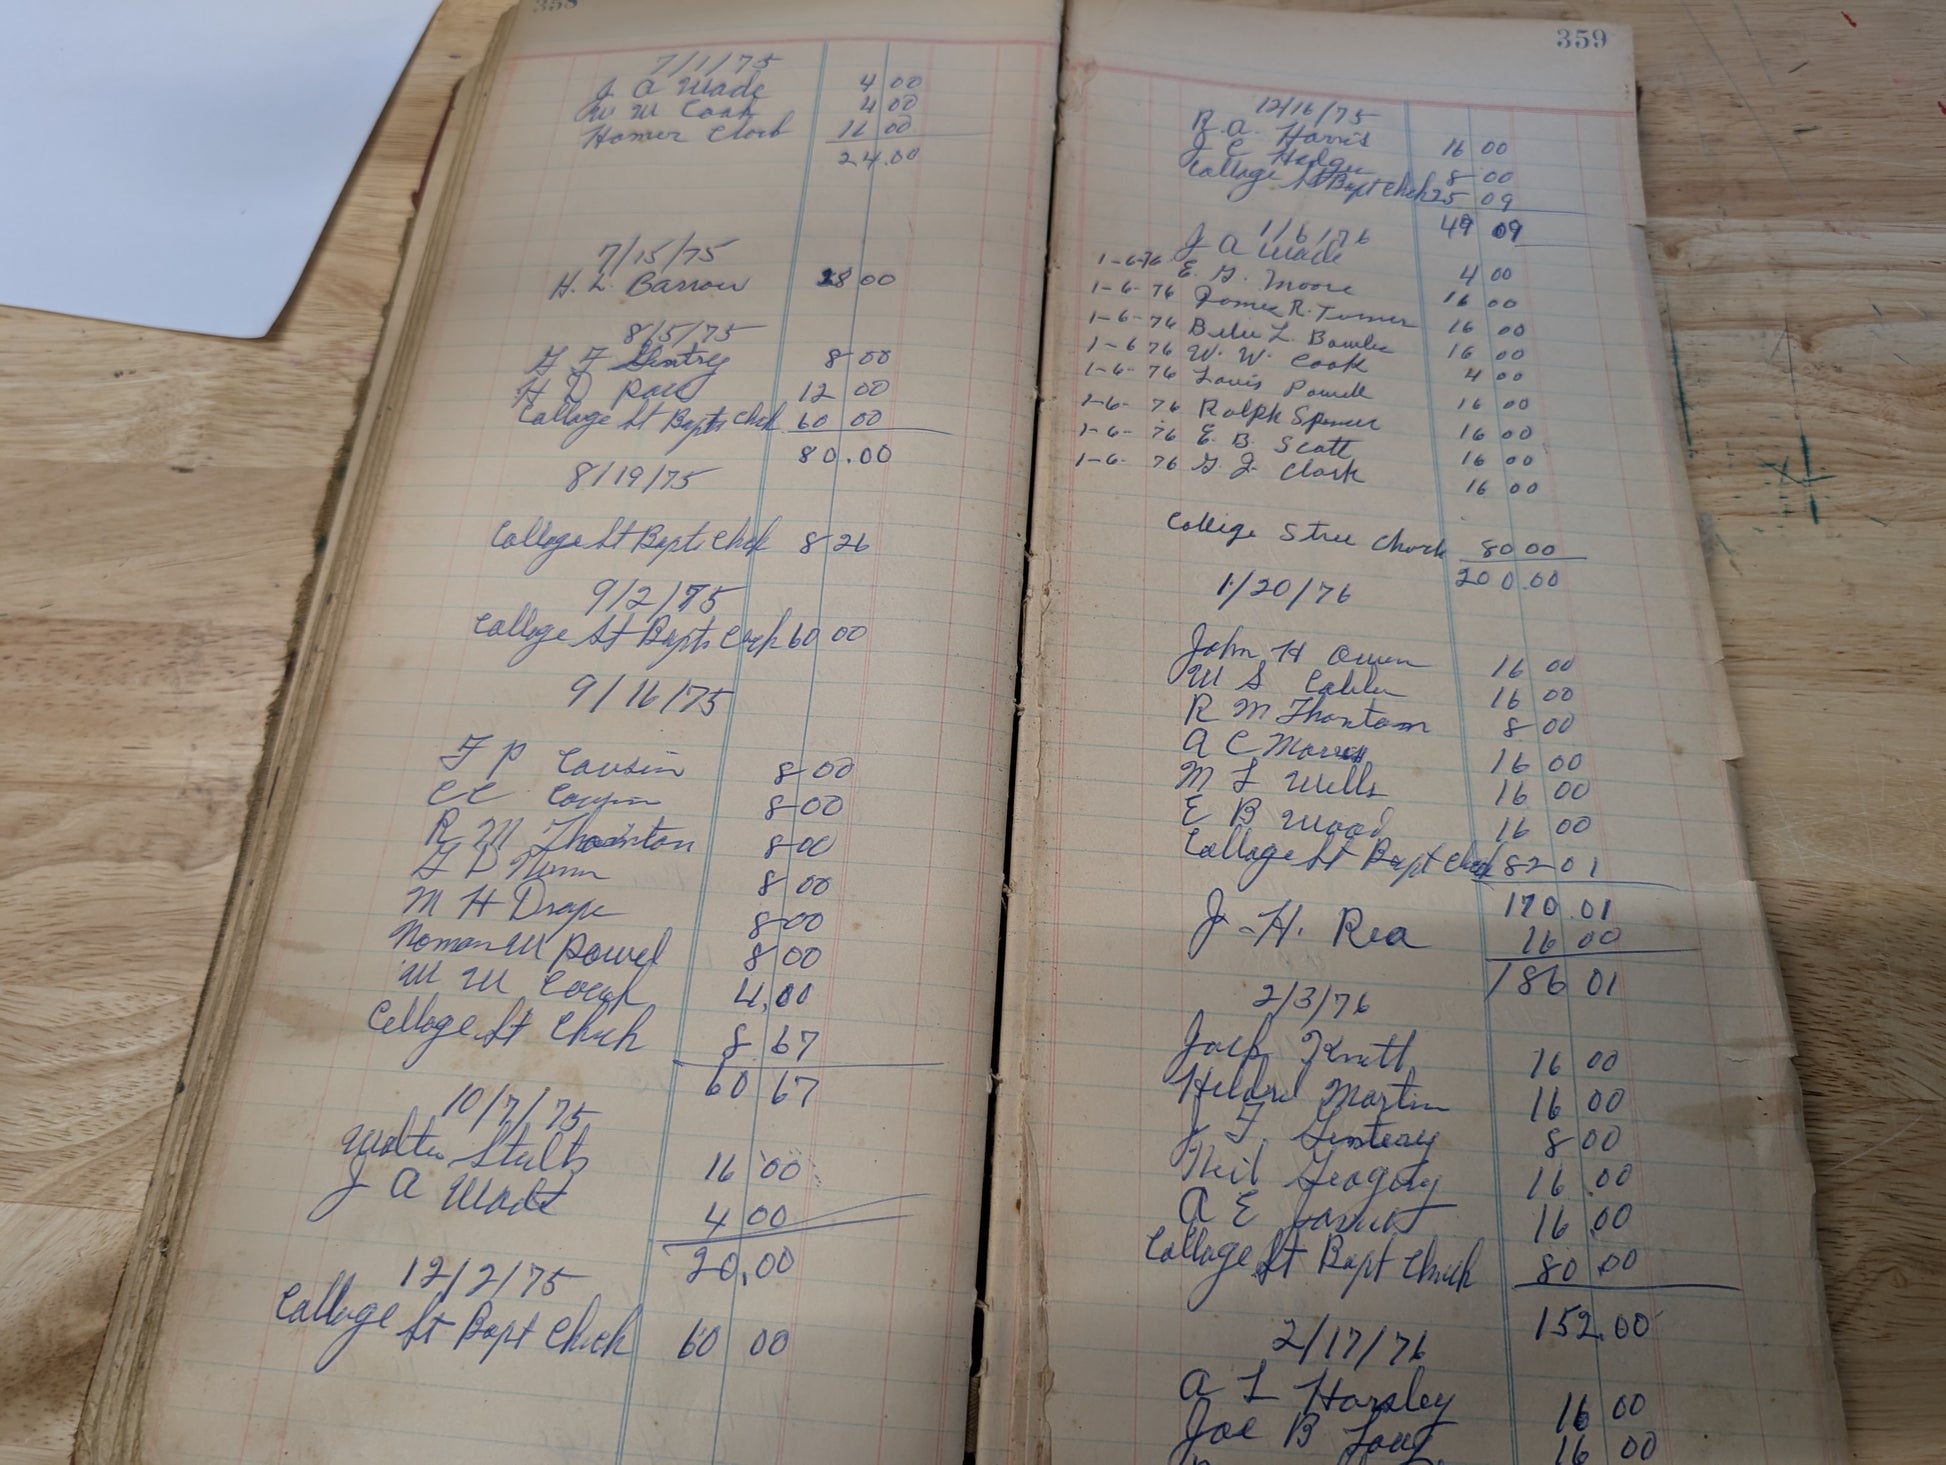 358
7/1/75
J. A Wade 4 00
W W Cook 4 00
Homer Clark 16 00
24.00
7/15/75
H. L. Barrow 28 00
8/5/75
Gentry 8 00
H D 12 00
College St Bapts Chch 60 00
80.00
8/19/75
College St Bapts Chch 8 26
9/2/75
College St Bapts Chch 60 00
9/16/75
F P Cousin 8 00
C C Cousin 8 00
R M Thornton 8 00
D Nunn 8 00
M H Drape 8 00
Norman W Powel 8 00
W W 4.00
College St Chch 8 67
60 67
10/7/75
Walter Stultz 16 00
J A Wade 4 00
20.00
12/2/75
College St Bapt Chch 60 00
359
12/16/75
R. A. Harris 16 00
J C Hedge 8 00
College St Bapt Chch 25 09
49 09
1/6/76
J A Wade 4 00
1-6-76 E. G. Moore 16 00
1-6-76 James R. Turner 16 00
1-6-76 L. 16 00
1-6-76 W. W. Cook 4 00
1-6-76 Louis Powell 16 00
1-6-76 Ralph Spencer 16 00
1-6-76 E. B. Scott 16 00
1-6-76 G. J. Clark 16 00
College Stree Church 80 00
200.00
1/20/76
John H Owen 16 00
W S 16 00
R M Thorntom 8 00
A C Morris 16 00
M L Wells 16 00
E B Wood 16 00
College St Bapt Chch 82 01
170.01
J. H. Rea 16 00
186 01
2/3/76
Jack Knott 16 00
Martin 16 00
8 00
Neil 16 00
A E 16 00
College St Bapt Chuch 80 00
152.00
2/17/76
A L Horsley 16 00
Joe B Long 16 00